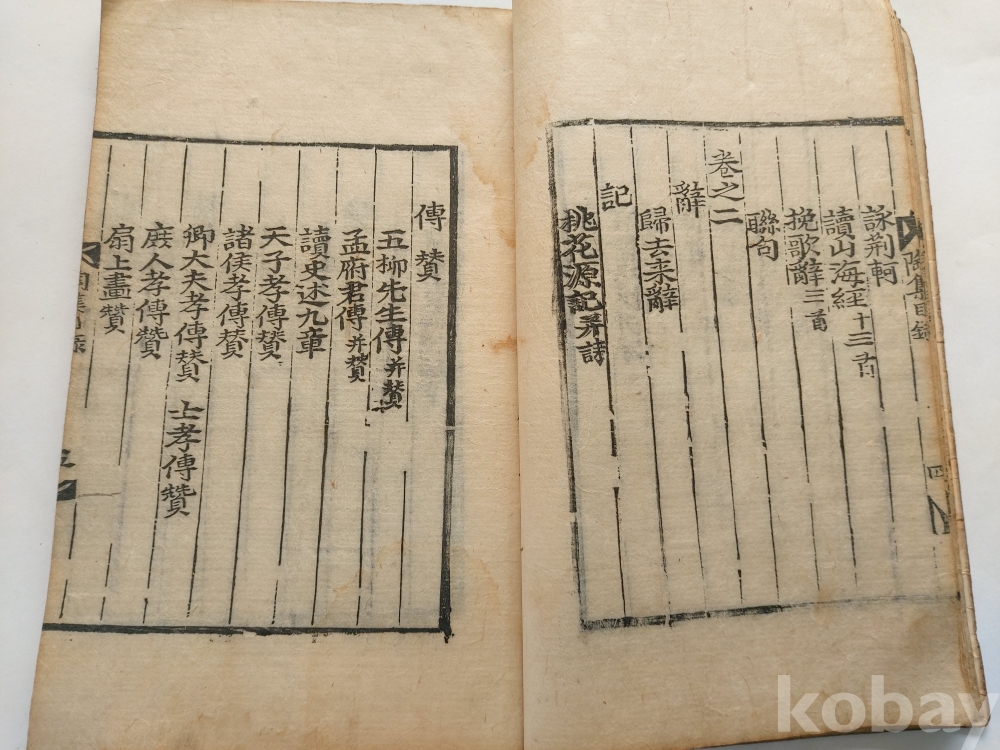 陶集目録
四
詠荆軻
讀山海經十三首
挽歌辭三首
聯句
卷之二
辭
歸去来辭
記
桃花源記并詩
傳贊
五柳先生傳并贊
孟府君傳并贊
讀史述九章
天子孝傳贊
諸侯孝傳贊
卿大夫孝傳贊 士孝傳贊
庻人孝傳贊
扇上畫贊
kobay